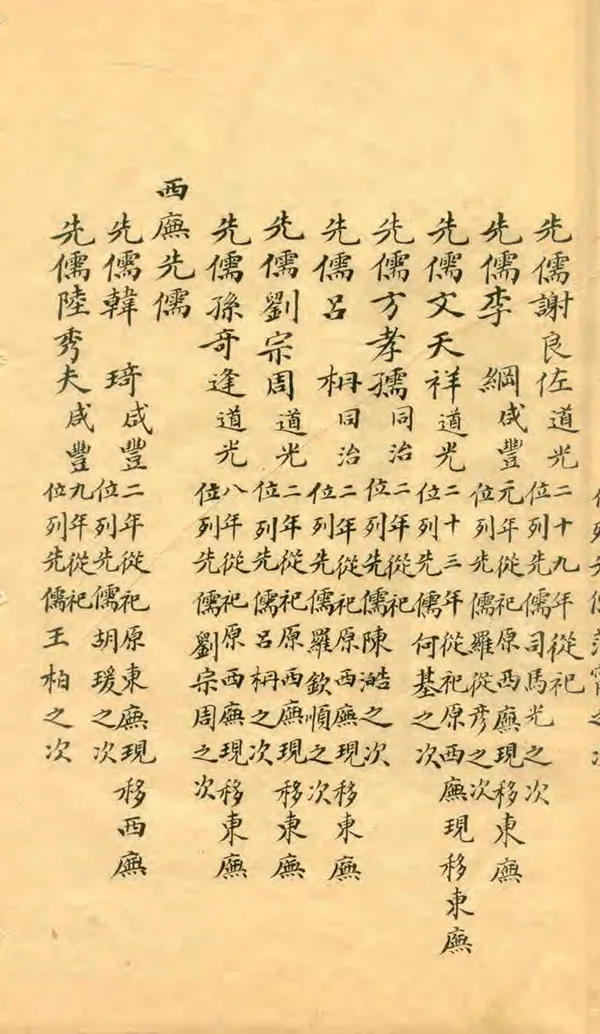 先儒謝良佐道光二十九年從祀
位列先儒司馬光之次
先儒李綱咸豐元年從祀原西廡現移東廡
位列先儒羅從彥之次
先儒文天祥道光二十三年從祀原西廡現移東廡
位列先儒何基之次
先儒方孝孺同治二年從祀
位列先儒陳澔之次
先儒呂柟同治二年從祀原西廡現移東廡
位列先儒羅欽順之次
先儒劉宗周道光二年從祀原西廡現移東廡
位列先儒呂柟之次
先儒孫奇逢道光八年從祀原西廡現移東廡
位列先儒劉宗周之次
西廡先儒
先儒韓琦咸豐二年從祀原東廡現移西廡
位列先儒胡瑗之次
先儒陸秀夫咸豐九年從祀
位列先儒王柏之次